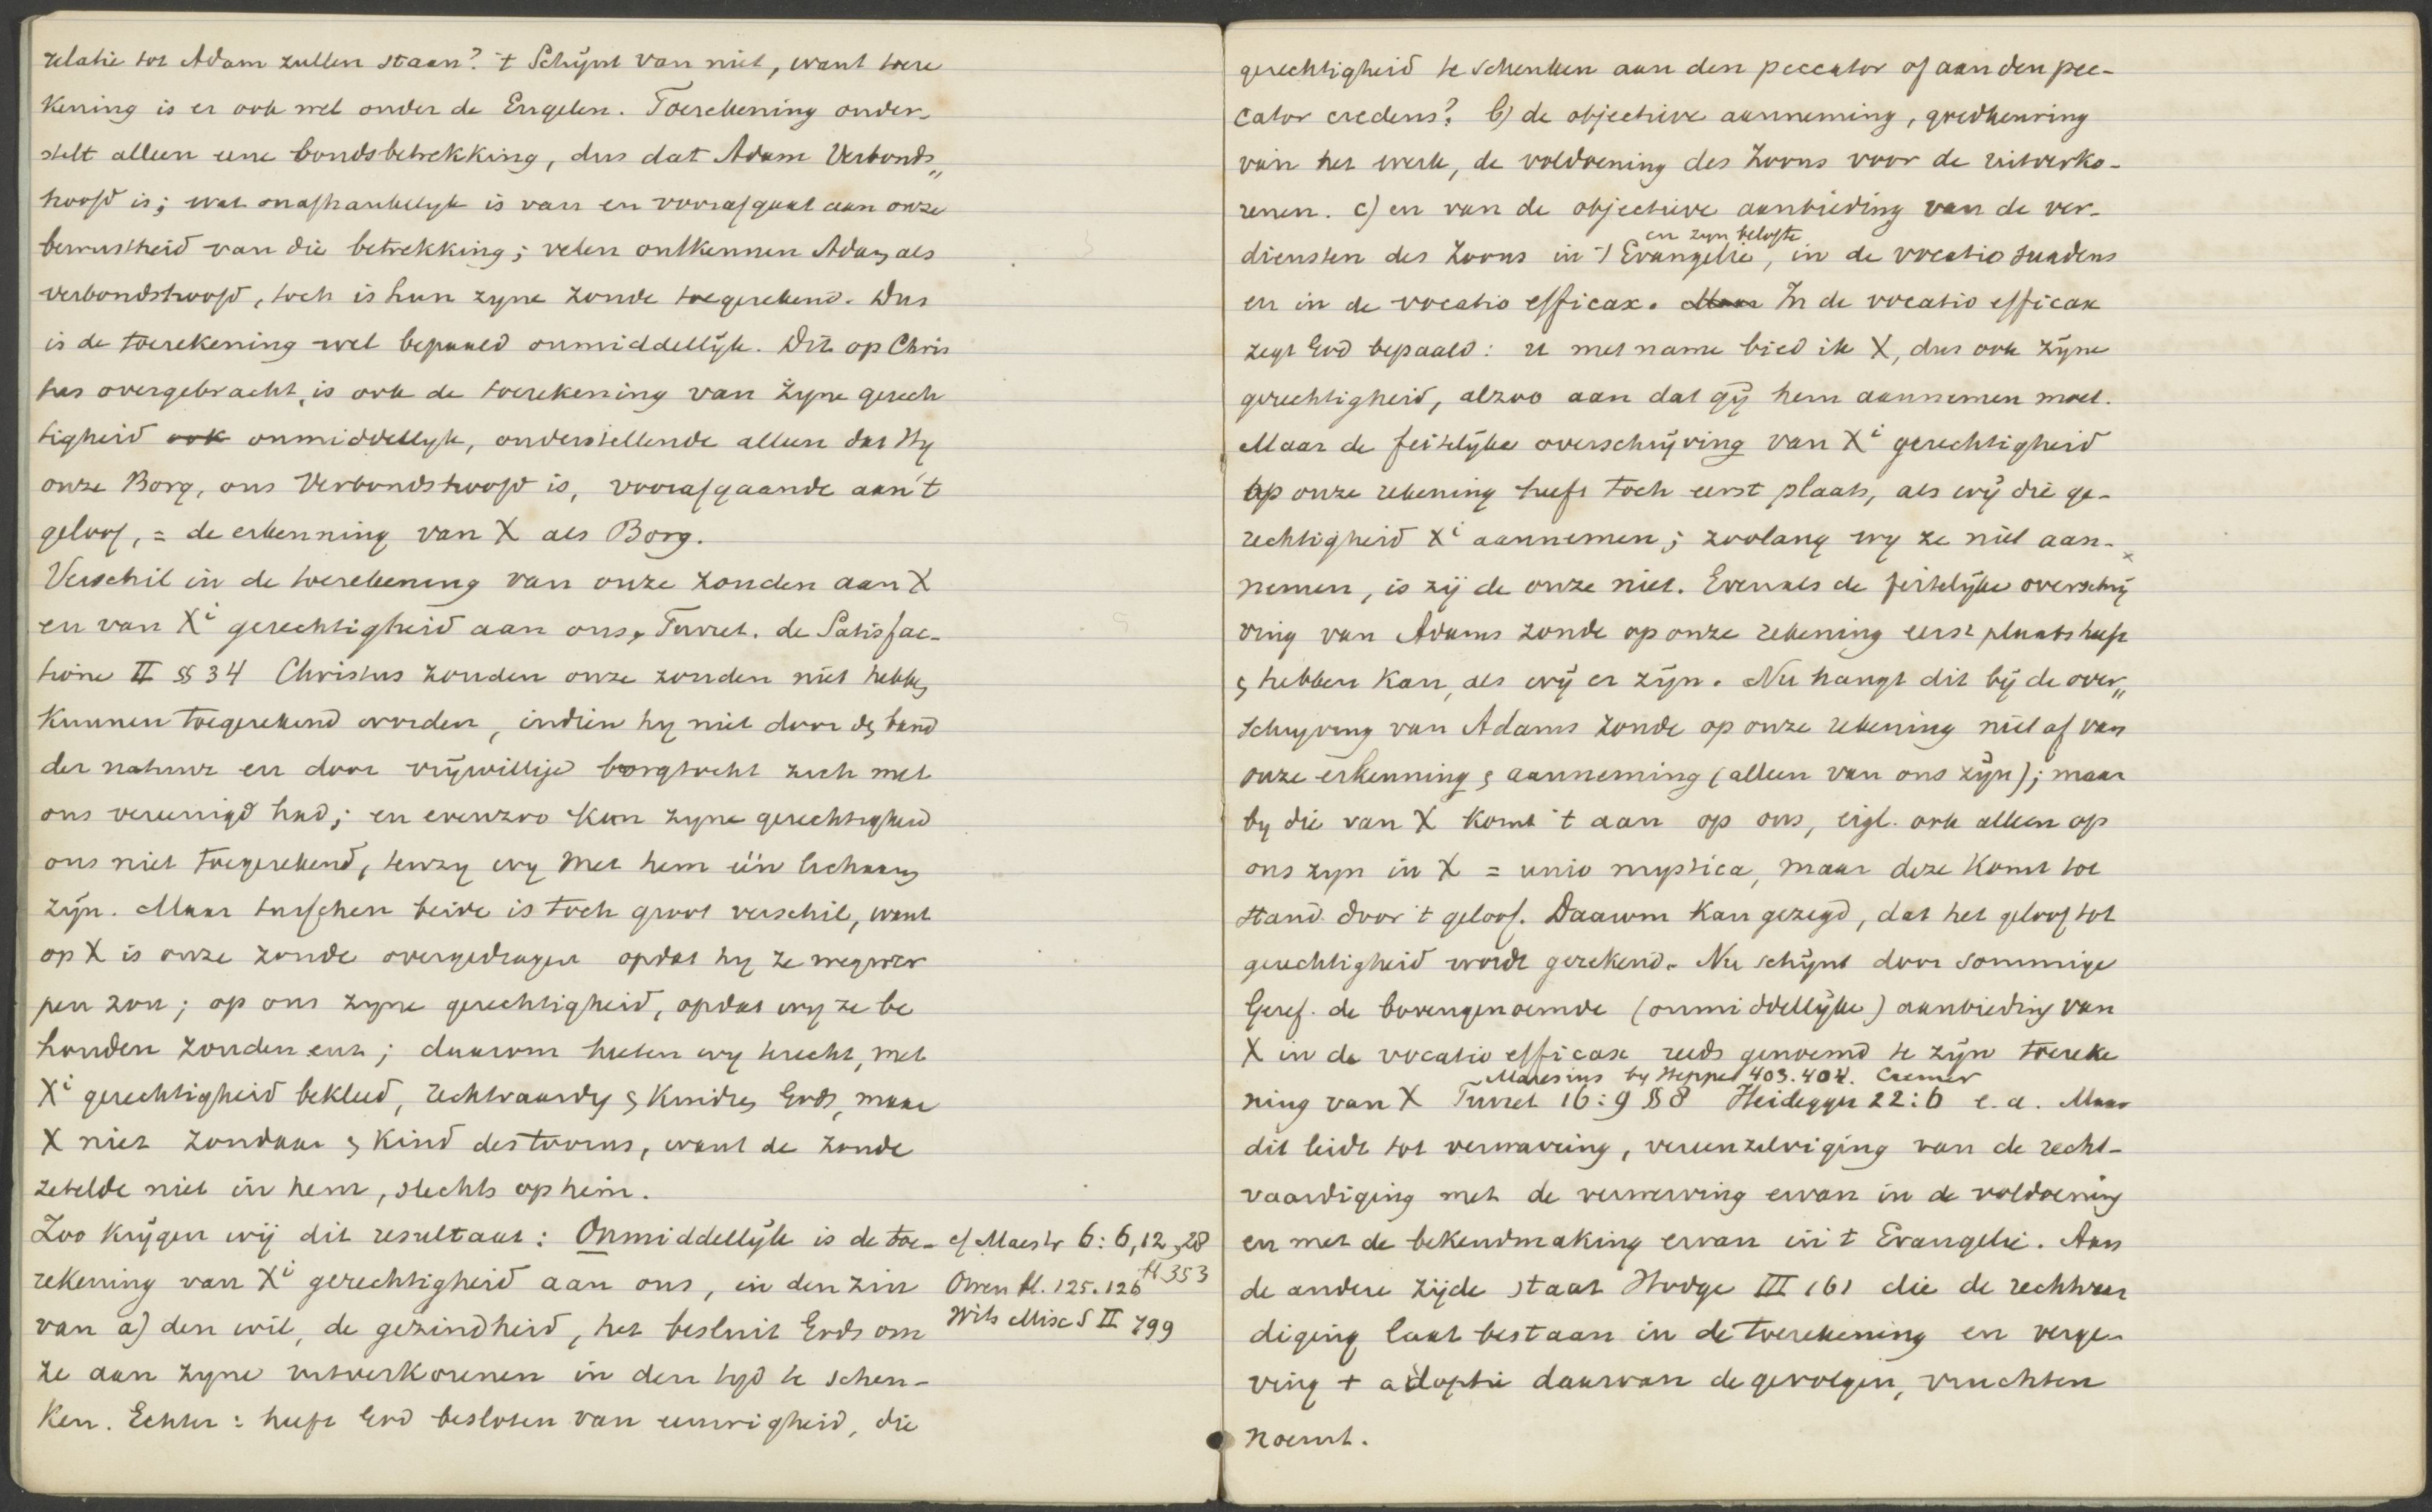 relatie tot Adam zullen staan? 't Schijnt van niet, want toere
kening is er ook wel onder de Engelen. Toerekening onder-
stelt alleen eene bondsbetrekking, dus dat Adam Verbonds„
hoofd is; wat onafhankelyk is van en voorafgaat aan onze
bewustheid van die betrekking; velen ontkennen Adam als
verbondshoofd, toch is hun zyne zonde toegerekend. Dus
is de toerekening wel bepaald onmiddellijk. Dit op Chris
tus overgebracht, is ook de toerekening van zyne gerech
tigheid ook onmiddellyk, onderstellende alleen dat Hy
onze Borg, ons Verbondshoofd is, voorafgaande aan 't
geloof, = de erkenning van X als Borg.
Verschil in de toerekening van onze zonden aan X
en van Xi gerechtigheid aan ons, Turret. de Satisfac-
tione II §§ 34 Christus zouden onze zonden niet hebben
kunnen toegerekend worden, indien hy niet door den band
der natuur en door vrijwillige borgtocht zich met
ons vereenigd had; en evenzoo kan zyne gerechtigheid
ons niet toegerekend, tenzy wy met hem één lichaam
zijn. Maar tusschen beide is toch groot verschil, want
op X is onze zonde overgedragen opdat hy ze wegwer
pen zou; op ons zyne gerechtigheid, opdat wy ze be
houden zouden enz; daarom heeten wy terecht, met
Xi gerechtigheid bekleed, rechtvaardig & kindren Gods, maar
X niet zondaar & kind des toorns, want de zonde
zetelde niet in hem, slechts op hem.
Zoo krijgen wij dit resultaat: Onmiddellijk is de toe-
rekening van Xi gerechtigheid aan ons, in den zin
van a) den wil, de gezindheid, het besluit Gods om
ze aan zyne uitverkorenen in den tyd te schen-
ken. Echter: heeft God besloten van eeuwigheid, die
cf Maestr 6:6,12,28
H 353
Owen bl. 125. 126
Wits Misc S II 799
gerechtigheid te schenken aan den peccator of aan den pec-
cator credens? b) de objectieve aanneming, goedkeuring
van het werk, de voldoening des Zoons voor de uitverko-
renen. c) en van de objectieve aanbieding van de ver-
en zyn belofte
diensten des Zoons in 't Evangelie, in de vocatio suadens
en in de vocatio efficax. Maar In de vocatio efficax
zegt God bepaald: u met name bied ik X, dus ook zijne
gerechtigheid, alzoo aan dat gij hem aannemen moet.
Maar de feitelijke overschrijving van Xi gerechtigheid
op onze rekening heeft toch eerst plaats, als wij die ge-
rechtigheid Xi aannemen; zoolang wy ze niet aan-
nemen, is zij de onze niet. Evenals de feitelijke overschrij
ving van Adams zonde op onze rekening eerst plaats heeft
& hebben kan, als wij er zijn. Nu hangt dit bij de over„
schryving van Adams zonde op onze rekening niet af van
onze erkenning & aanneming (alleen van ons zijn); maar
by die van X komt 't aan op ons, eigl. ook alleen op
ons zyn in X = unio mystica, maar deze komt tot
stand door 't geloof. Daarom kan gezegd, dat het geloof tot
gerechtigheid wordt gerekend. Nu schijnt door sommige
Geref. de bovengenoemde (onmiddellijke) aanbieding van
X in de vocatio efficax reeds genoemd te zijn toereke
Maresius by Heppe 403. 404. Cremer
ning van X Turret 16:9 § 8 Heidegger 22:6 e.a. Maar
dit leidt tot verwarring, vereenzelviging van de recht-
vaardiging met de verwerving ervan in de voldoening
en met de bekendmaking ervan in 't Evangelie. Aan
de andere zijde staat Hodge III 161 die de rechtvaar
diging laat bestaan in de toerekening en verge-
ving + adoptie daarvan de gevolgen, vruchten
noemt.